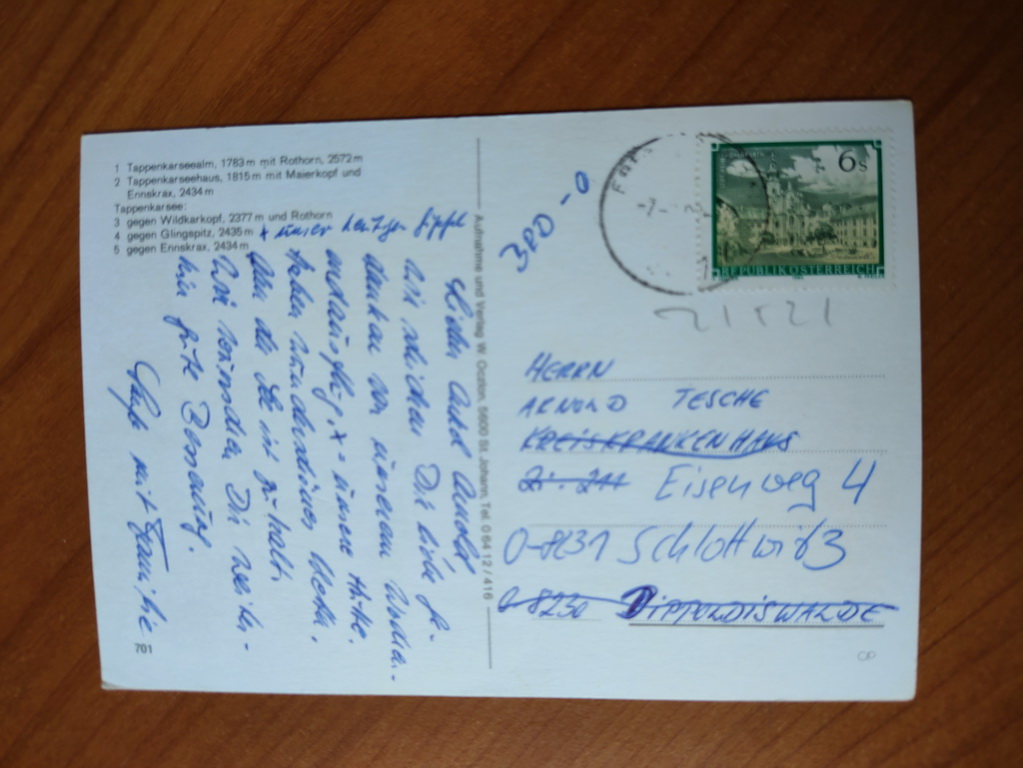 1 Tappenkarseealm, 1783 m mit Rothorn, 2572 m
2 Tappenkarseehaus, 1815 m mit Maierkopf und
Ennskrax, 2434 m
Tappenkarsee:
3 gegen Wildkarkopf, 2377 m und Rothorn
4 gegen Glingspitz, 2435 m x unser heutiger Gipfel
5 gegen Ennskrax, 2434 m
Lieber Onkel Arnold,
wir schicken Dir liebe Ge-
danken von unserem Wander-
x = unsere Hütte.
haben wunderschönes Wetter,
Wir wünschen Dir weiter-
hin gute Besserung.
mit Familie
701
Aufnahme und Verlag W. 5600 St. Johann, Tel. 0 64 12 / 416
BRD - 0
6 S
REPUBLIK ÖSTERREICH
HERRN
ARNOLD TESCHE
KREISKRANKENHAUS
Zi. 211 Eisenweg 4
O-8231 Schlottwitz
O-8230 DIPPOLDISWALDE